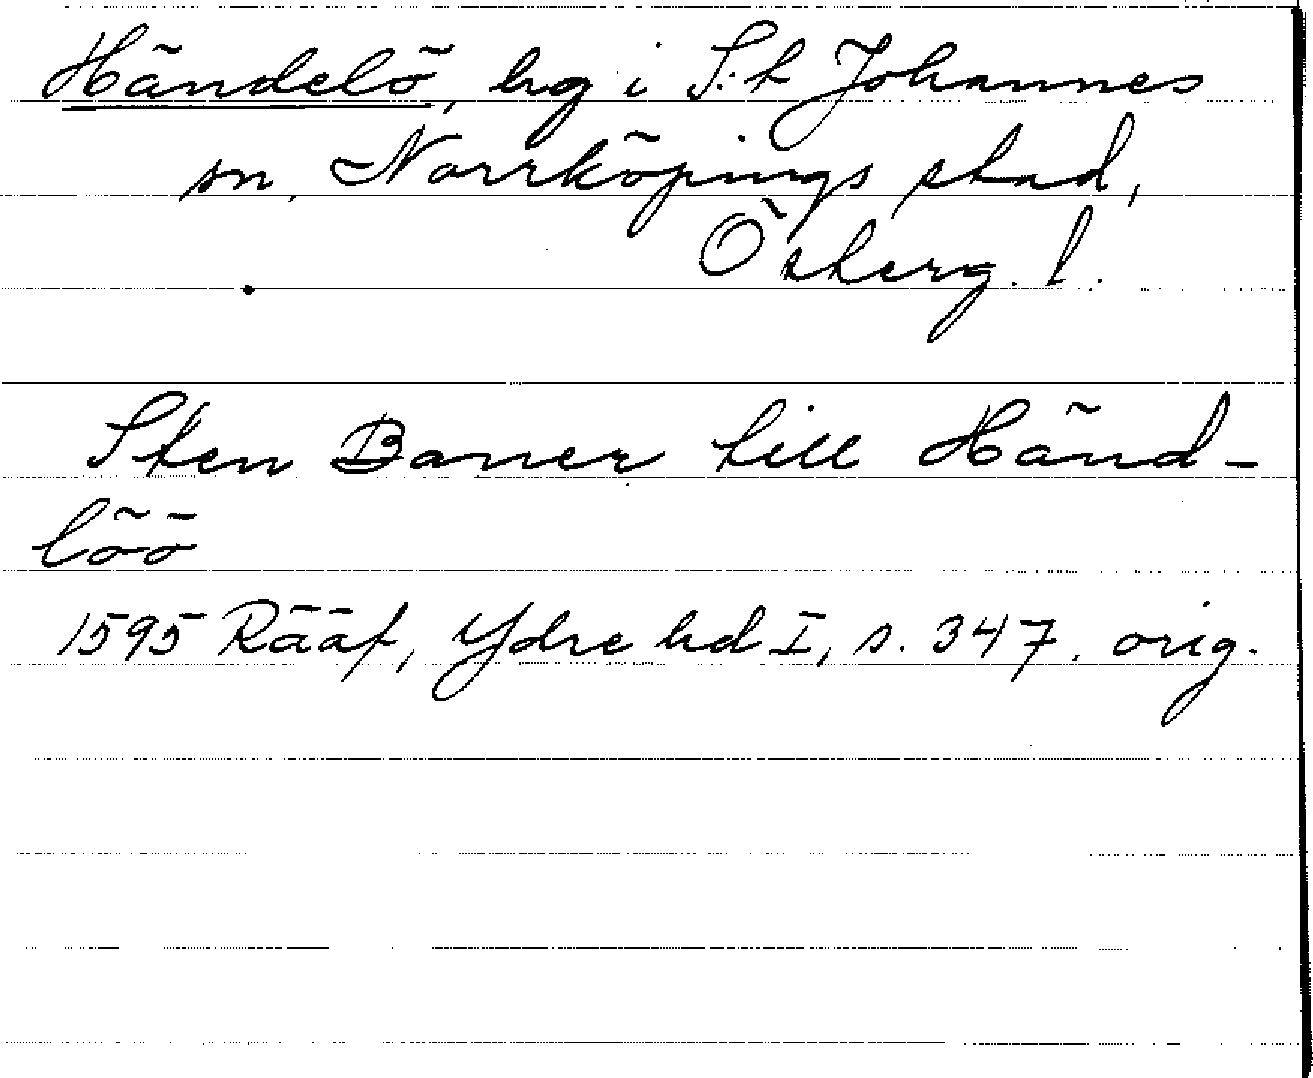 Händelö, hg i S:t Johannes
sn, Norrköpings stad,
Österg. l.
Sten Baner till Händ-
löö
1595 Rääf, Ydre hd I, s. 347. orig.